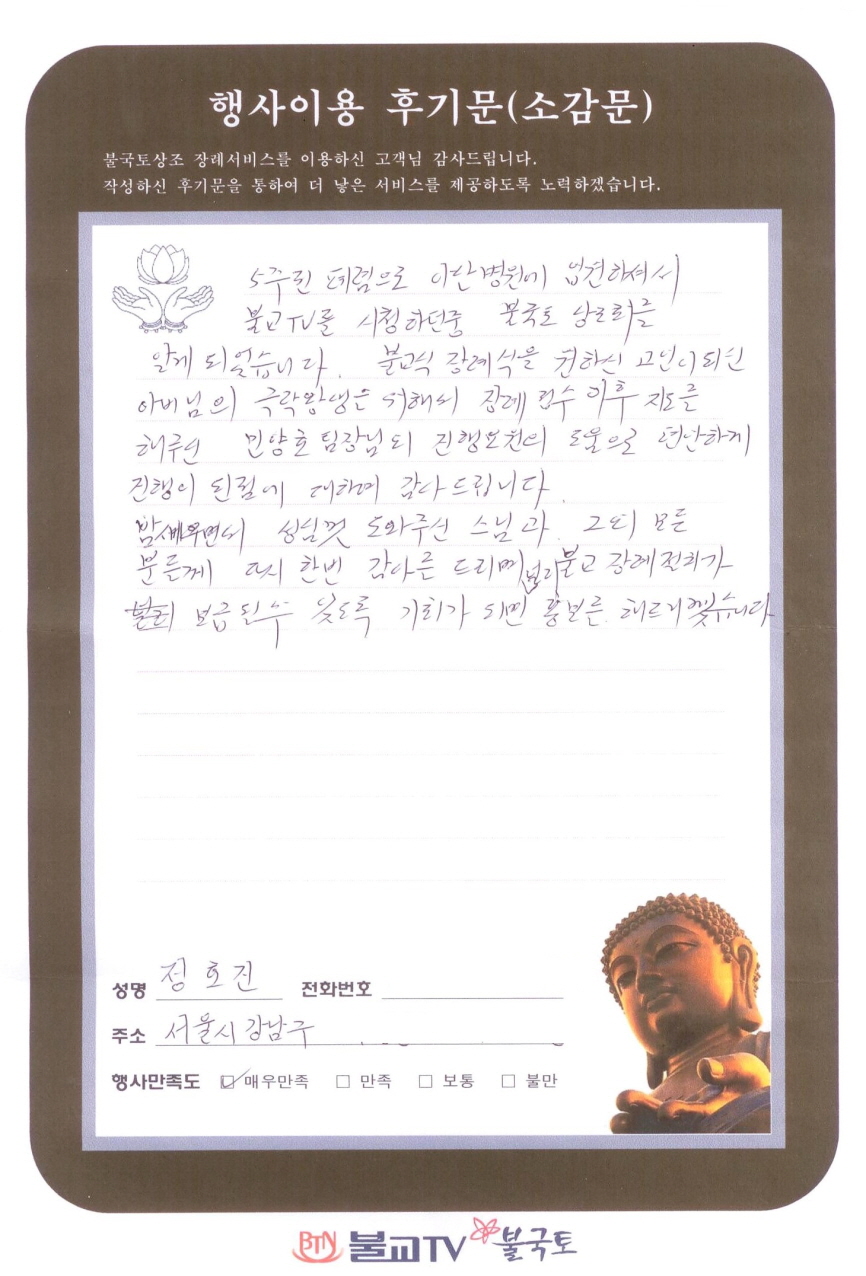 행사이용 후기문(소감문)
불국토상조 장례서비스를 이용하신 고객님 감사드립니다.
작성하신 후기문을 통하여 더 낳은 서비스를 제공하도록 노력하겠습니다.
5주전 폐렴으로 병원에 입원하셔서
불교TV를 시청하던중 불국토 상조회를
알게 되었습니다. 불교식 장례식을 원하신 고인이되신
아버님의 극락왕생을 위해서 장례 접수 이후 지도를
해주신 민양호 팀장님의 진행요원의 도움으로 편안하게
진행이 된점에 대하여 감사드립니다.
밤새우면서 성심껏 도와주신 스님과 그외 모든
분들께 다시 한번 감사를 드리며 널리 불교 장례절차가
보급될수 있도록 기회가 되면 홍보를 해드리겠습니다
성명 정호진 전화번호
주소 서울시 강남구
행사만족도 ☑ 매우만족 □ 만족 □ 보통 □ 불만
BTN 불교TV 불국토